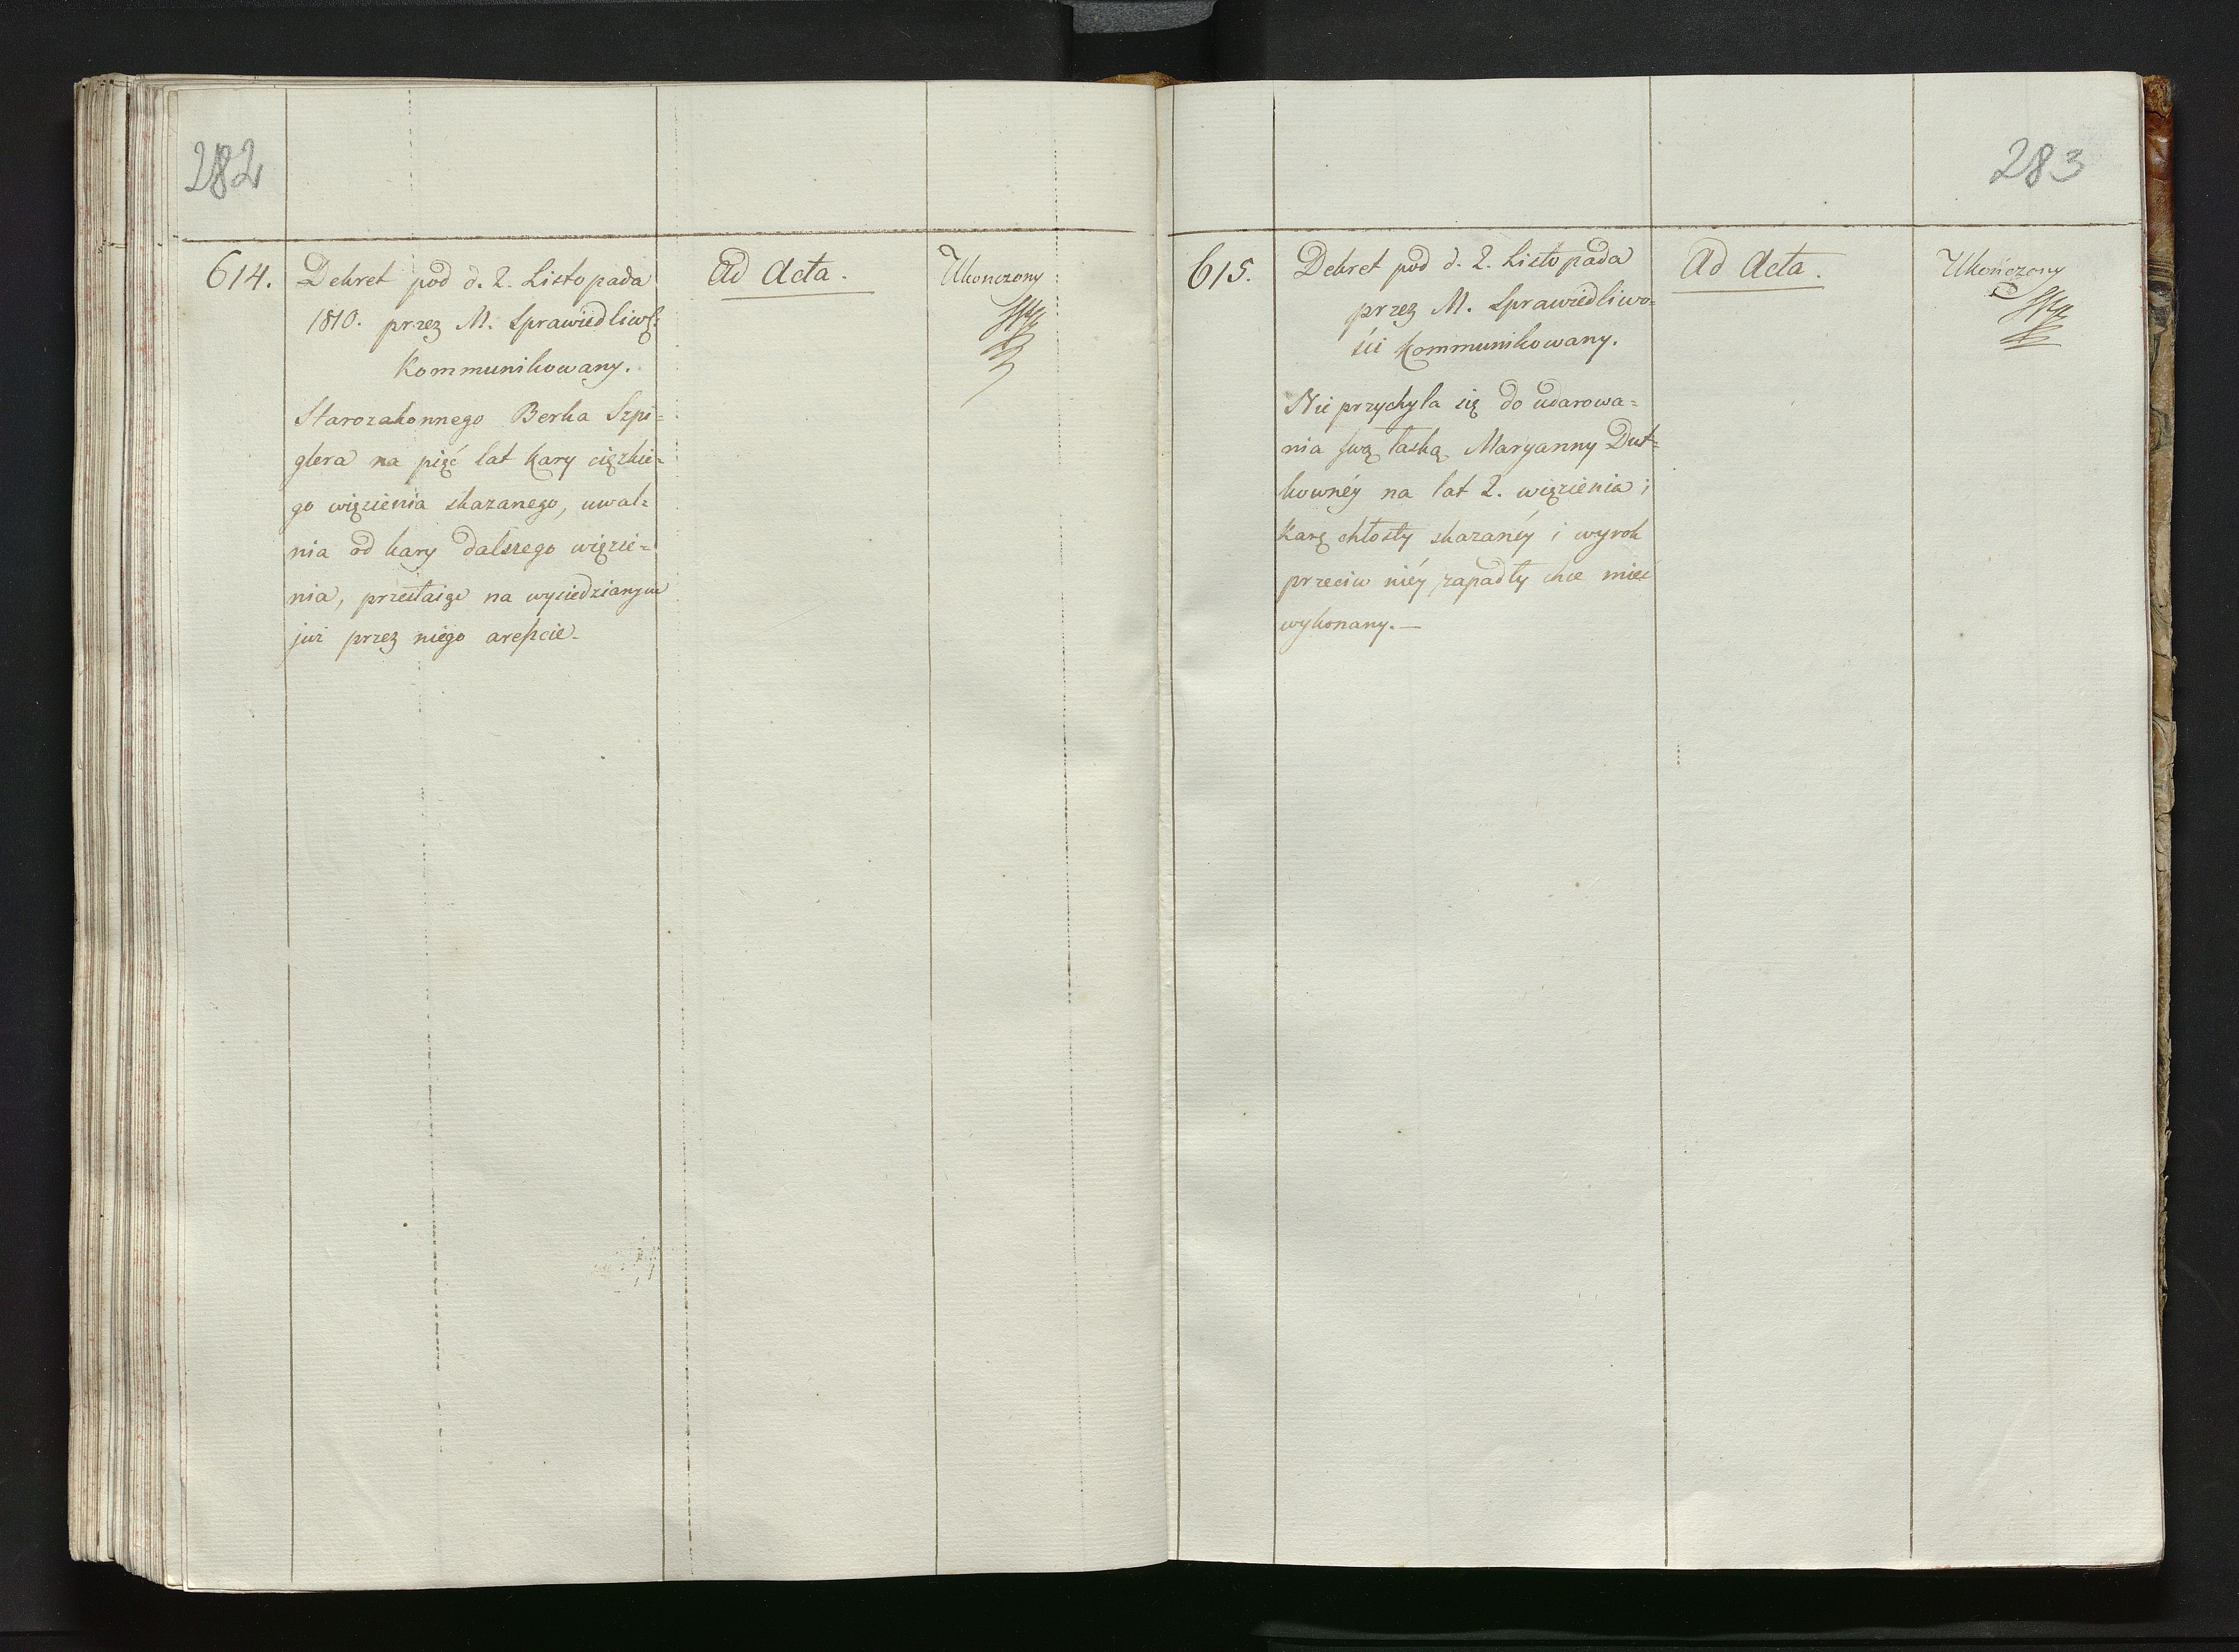 282
614.
Dekret pod d. 2. Listopada
1810. przez M. Sprawiedliwś:
Kommunikowany.
Starozakonnego Berka Szpi=
glera na pięć lat kary ciężkie=
go więzienia skazanego, uwal=
nia od kary dalszego więzie=
nia, przestaiąc na wysiedzianym
już przez niego areszcie.
Ad Acta.
Ukonczony
283
615.
Dekret pod d. 2. Listopada
przez M. Sprawiedliwo=
ści Kommunikowany.
Nie przychyla się do udarowa=
nia swą łaską Maryanny Dut=
kownéy na lat 2. więzienia i
karę chłosty skazanéy i wyrok
przeciw niéy zapadły chce mieć
wykonany.—
Ad Acta.
Ukończony